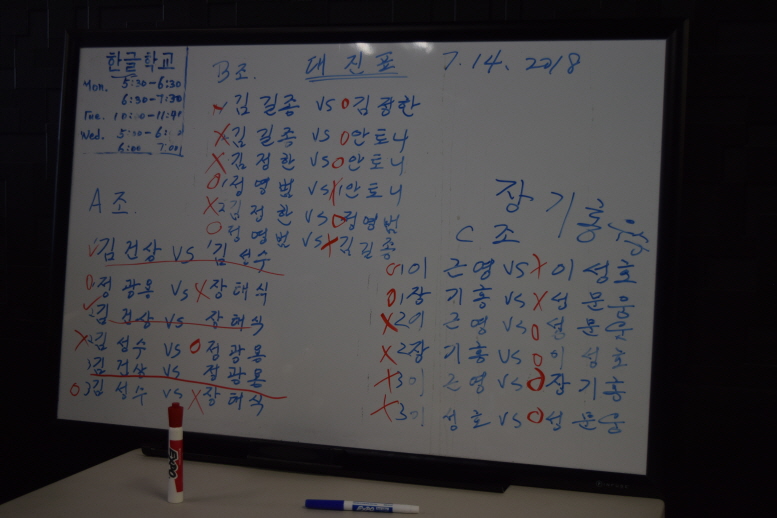 한글학교
Mon. 5:30-6:30
6:30-7:30
Tue. 10:00-11:40
Wed. 5:30-6:
6:00 7:00
B조. 대진표 7.14.2018
X 김길종 VS O 김광한
X 김길종 VS O 안토니
X 김정한 VS O 안토니
O 정영범 VS X 안토니
X 2 김정한 VS O 정영범
O 정영범 VS X 김길종
A조.
김건상 VS 김성수
O 정광용 VS X 장해식
김건상 VS 장해식
X 김성수 VS O 정광용
김건상 VS 정광용
O 김성수 VS X 장해식
장기홍
C조
O 1 이근영 VS X 이성호
O 1 장기홍 VS X 성문웅
X 2 이근영 VS O 성문웅
X 2 장기홍 VS O 이성호
X 3 이근영 VS O 장기홍
X 3 이성호 VS O 성문웅
EXPO